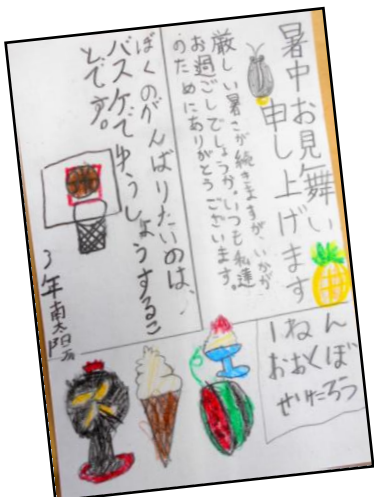 暑中お見舞い
申し上げます
厳しい暑こが続きますが、いかが
お過ごしでしょうか。いつも私達
のためにありがとうございます。
ぼくのがんばりたいのは、
バスケでゆうしょうするこ
とです。
3年
1ねん
おおくぼ
せいたろう